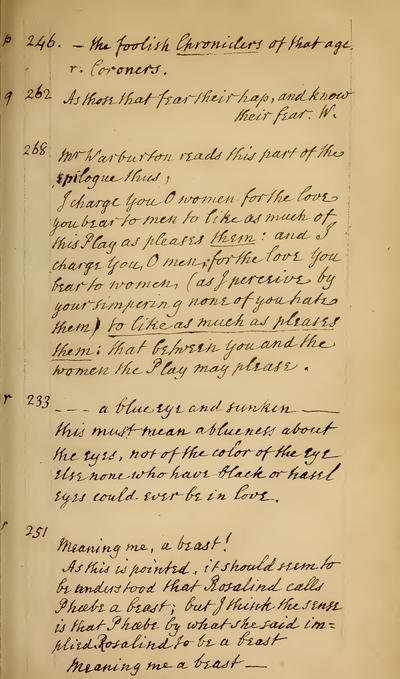 p 246. – the foolish Chroniclers of that age.
r. Coroners.
q 262 As those that fear their hap, and know
their fear. W.
268 Mr Warburton reads this part of the
Epilogue thus,
I charge You O women for the love
you bear to men to like as much of
this Play as pleases them: and I
charge You, O men, for the love You
bear to women, (as I perceive by
your simpering none of you hate
them) to like as much as pleases
them: that between You and the
women the Play may please.
r 233 --- a blue eye and sunken —
this must mean a blueness about
the eyes, not of the color of the Eye
Else none who have black or hasel
Eyes could ever be in love.
s 251
Meaning me, a beast!
As this is pointed, it should seem to
be understood that Rosalind calls
Phœbe a beast; but I think the sense
is that Phœbe by what she said im=
plied Rosalind to be a beast
Meaning me a beast —